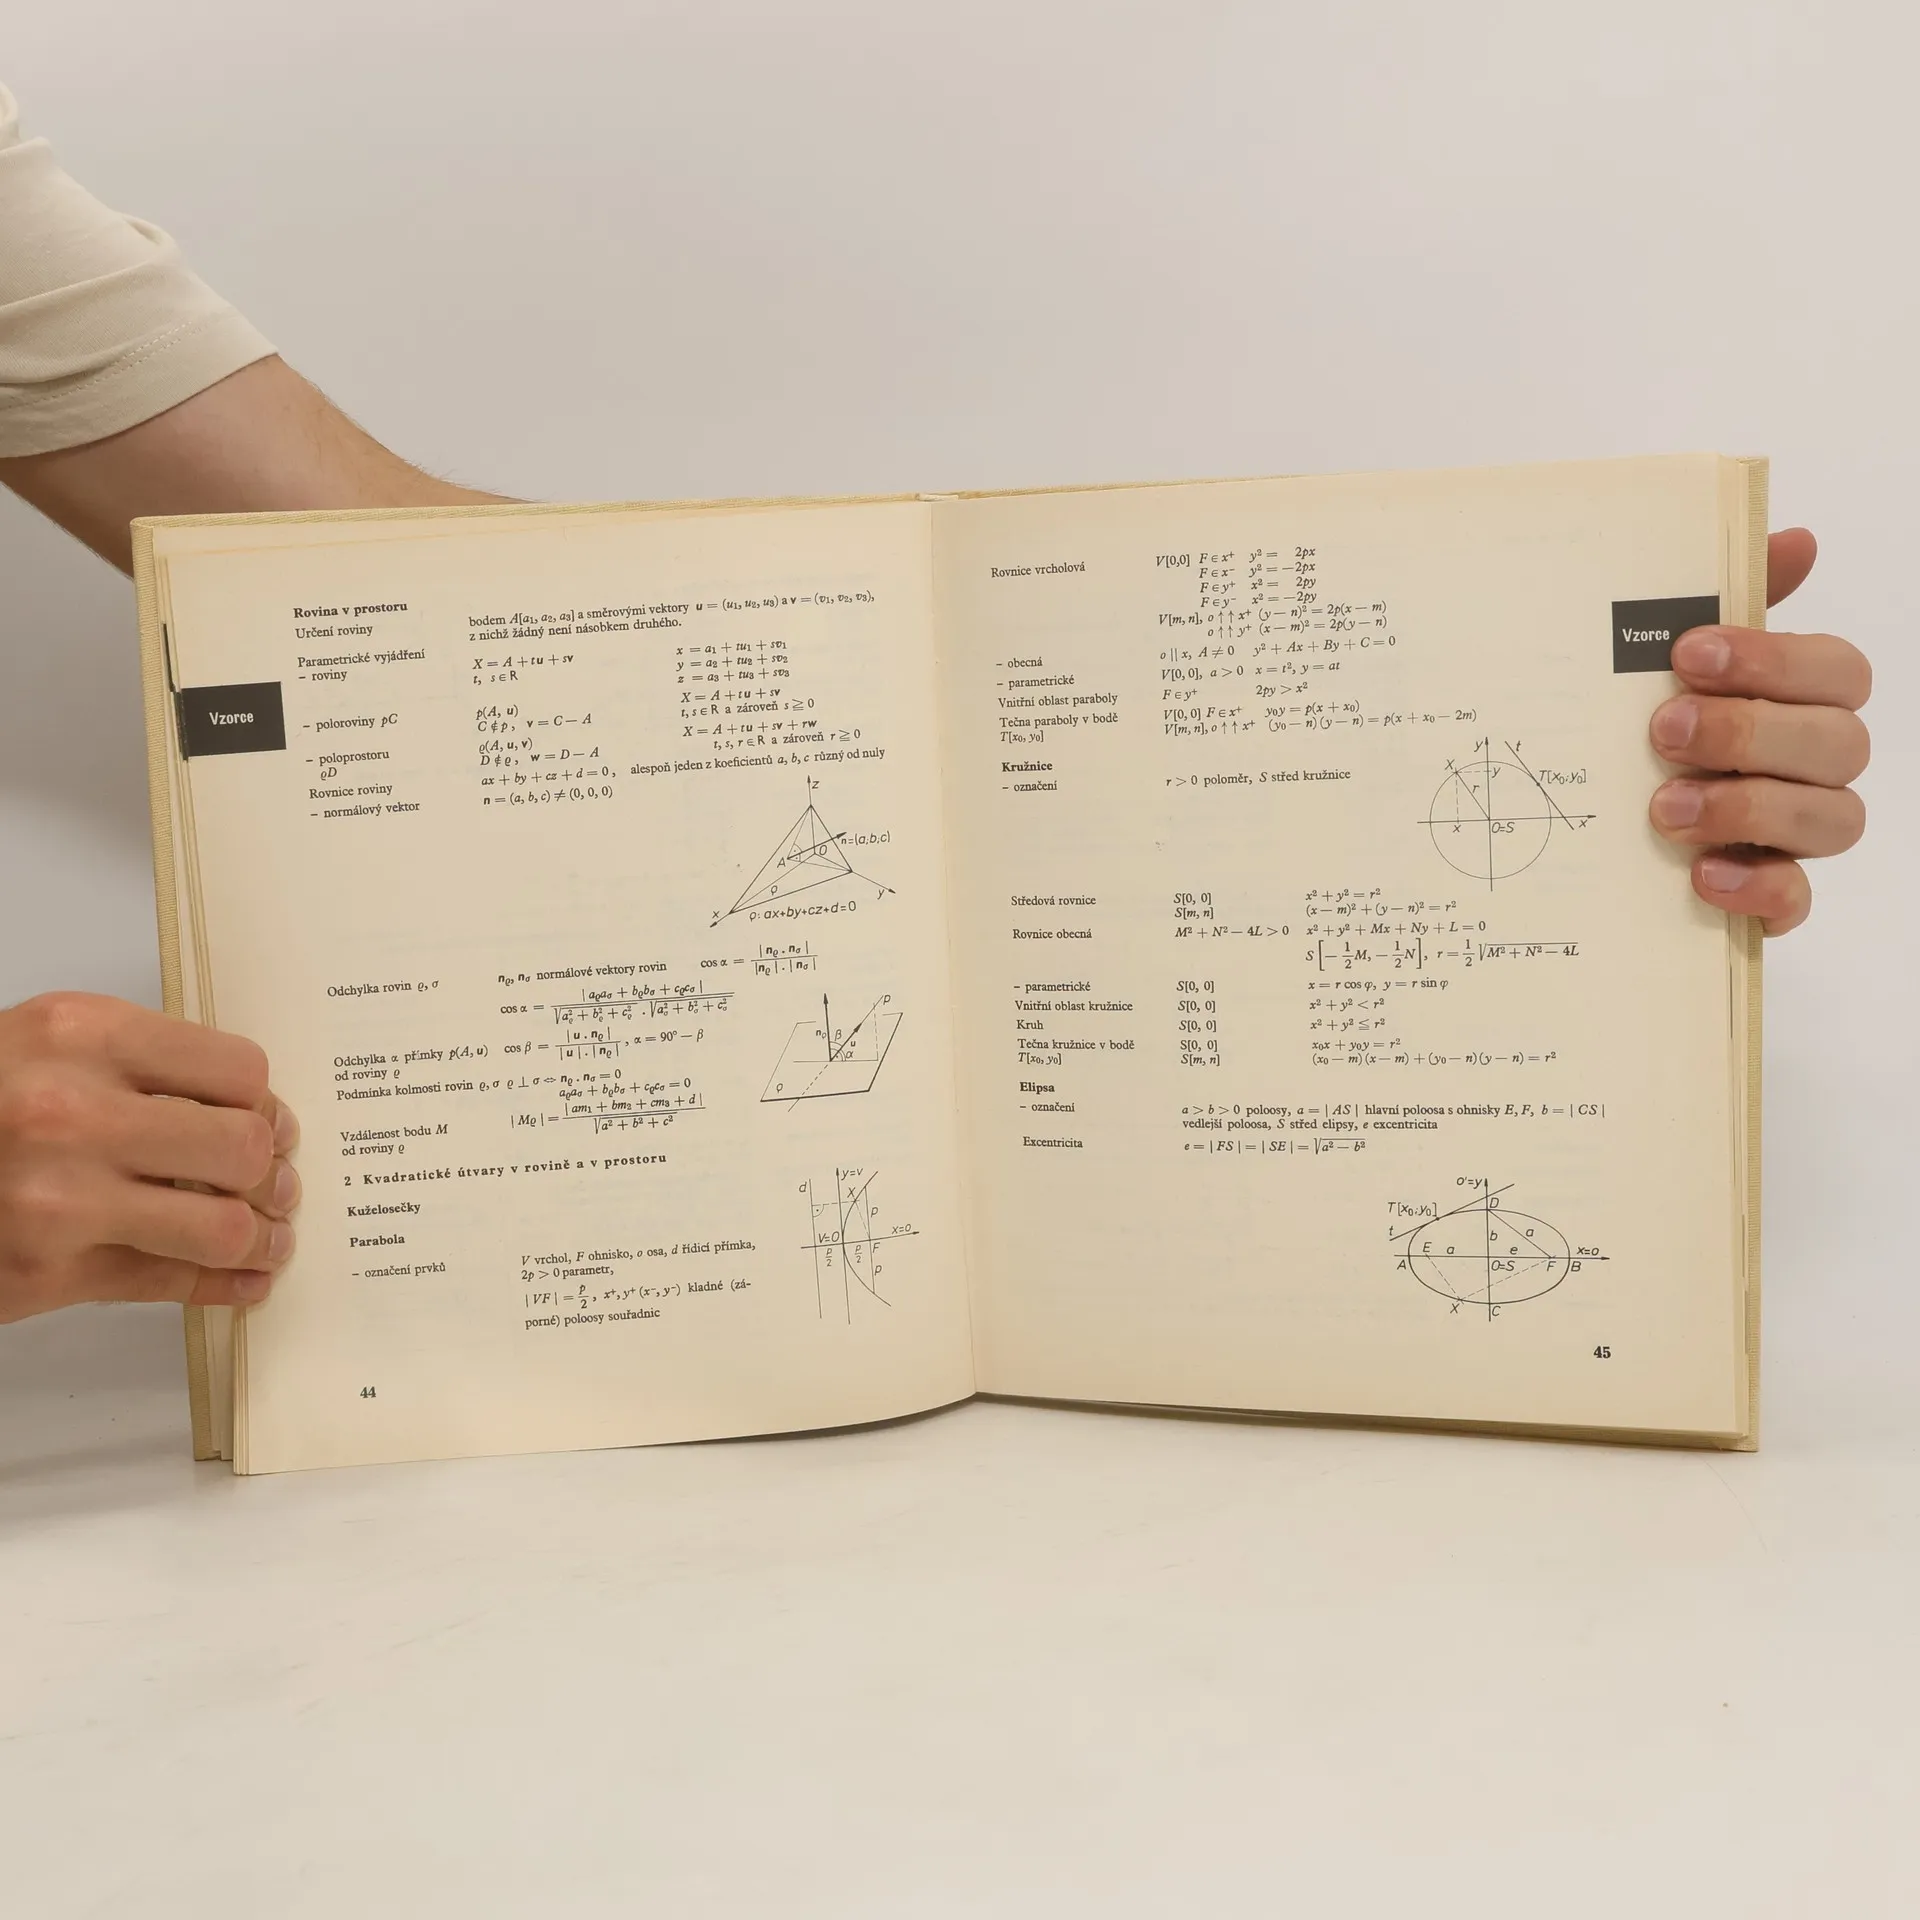 Rovina v prostoru
Určení roviny bodem A[a₁, a₂, a₃] a směrovými vektory u = (u₁, u₂, u₃) a v = (v₁, v₂, v₃),
z nichž žádný není násobkem druhého.
Parametrické vyjádření
– roviny X = A + tu + sv x = a₁ + tu₁ + sv₁
t, s ∈ R y = a₂ + tu₂ + sv₂
z = a₃ + tu₃ + sv₃
– poloroviny pC p(A, u) X = A + tu + sv
C ∉ p, v = C — A t, s ∈ R a zároveň s ≧ 0
– poloprostoru ϱ(A, u, v) X = A + tu + sv + rw
ϱD D ∉ ϱ, w = D — A t, s, r ∈ R a zároveň r ≧ 0
Rovnice roviny ax + by + cz + d = 0, alespoň jeden z koeficientů a, b, c různý od nuly
– normálový vektor n = (a, b, c) ≠ (0, 0, 0)
Vzorce
z
n=(a;b;c)
A O
ϱ y
x ϱ: ax+by+cz+d=0
Odchylka rovin ϱ, σ n_ϱ, n_σ normálové vektory rovin cos α = |n_ϱ . n_σ| / |n_ϱ| . |n_σ|
cos α = |a_ϱa_σ + b_ϱb_σ + c_ϱc_σ| / √(a_ϱ² + b_ϱ² + c_ϱ²) . √(a_σ² + b_σ² + c_σ²)
Odchylka α přímky p(A, u) cos β = |u . n_ϱ| / |u| . |n_ϱ|, α = 90° — β
od roviny ϱ
n_ϱ β u α p ϱ
Podmínka kolmosti rovin ϱ, σ ϱ ⊥ σ ⇔ n_ϱ . n_σ = 0
a_ϱa_σ + b_ϱb_σ + c_ϱc_σ = 0
Vzdálenost bodu M |Mϱ| = |am₁ + bm₂ + cm₃ + d| / √(a² + b² + c²)
od roviny ϱ
2 Kvadratické útvary v rovině a v prostoru
Kuželosečky
Parabola
– označení prvků V vrchol, F ohnisko, o osa, d řídicí přímka,
2p > 0 parametr,
|VF| = p/2, x⁺, y⁺ (x⁻, y⁻) kladné (zá-
porné) poloosy souřadnic
d y=v X p
V=O x=o
p/2 p/2 F p
44
Rovnice vrcholová V[0,0] F ∈ x⁺ y² = 2px
F ∈ x⁻ y² = —2px
F ∈ y⁺ x² = 2py
F ∈ y⁻ x² = —2py
V[m, n], o ↑↑ x⁺ (y — n)² = 2p(x — m)
o ↑↑ y⁺ (x — m)² = 2p(y — n)
– obecná o || x, A ≠ 0 y² + Ax + By + C = 0
– parametrické V[0, 0], a > 0 x = t², y = at
Vnitřní oblast paraboly F ∈ y⁺ 2py > x²
Tečna paraboly v bodě V[0, 0] F ∈ x⁺ y₀y = p(x + x₀)
T[x₀, y₀] V[m, n], o ↑↑ x⁺ (y₀ — n)(y — n) = p(x + x₀ — 2m)
Vzorce
Kružnice
– označení r > 0 poloměr, S střed kružnice
y t
X y T[x₀;y₀]
r
x O=S x
Středová rovnice S[0, 0] x² + y² = r²
S[m, n] (x — m)² + (y — n)² = r²
Rovnice obecná M² + N² — 4L > 0 x² + y² + Mx + Ny + L = 0
S[— 1/2 M, — 1/2 N], r = 1/2 √(M² + N² — 4L)
– parametrické S[0, 0] x = r cos φ, y = r sin φ
Vnitřní oblast kružnice S[0, 0] x² + y² < r²
Kruh S[0, 0] x² + y² ≦ r²
Tečna kružnice v bodě S[0, 0] x₀x + y₀y = r²
T[x₀, y₀] S[m, n] (x₀ — m)(x — m) + (y₀ — n)(y — n) = r²
Elipsa
– označení a > b > 0 poloosy, a = |AS| hlavní poloosa s ohnisky E, F, b = |CS|
vedlejší poloosa, S střed elipsy, e excentricita
Excentricita e = |FS| = |SE| = √(a² — b²)
o'=y
T[x₀;y₀] D
t b a
E a e x=o
A O=S F B
X C
45